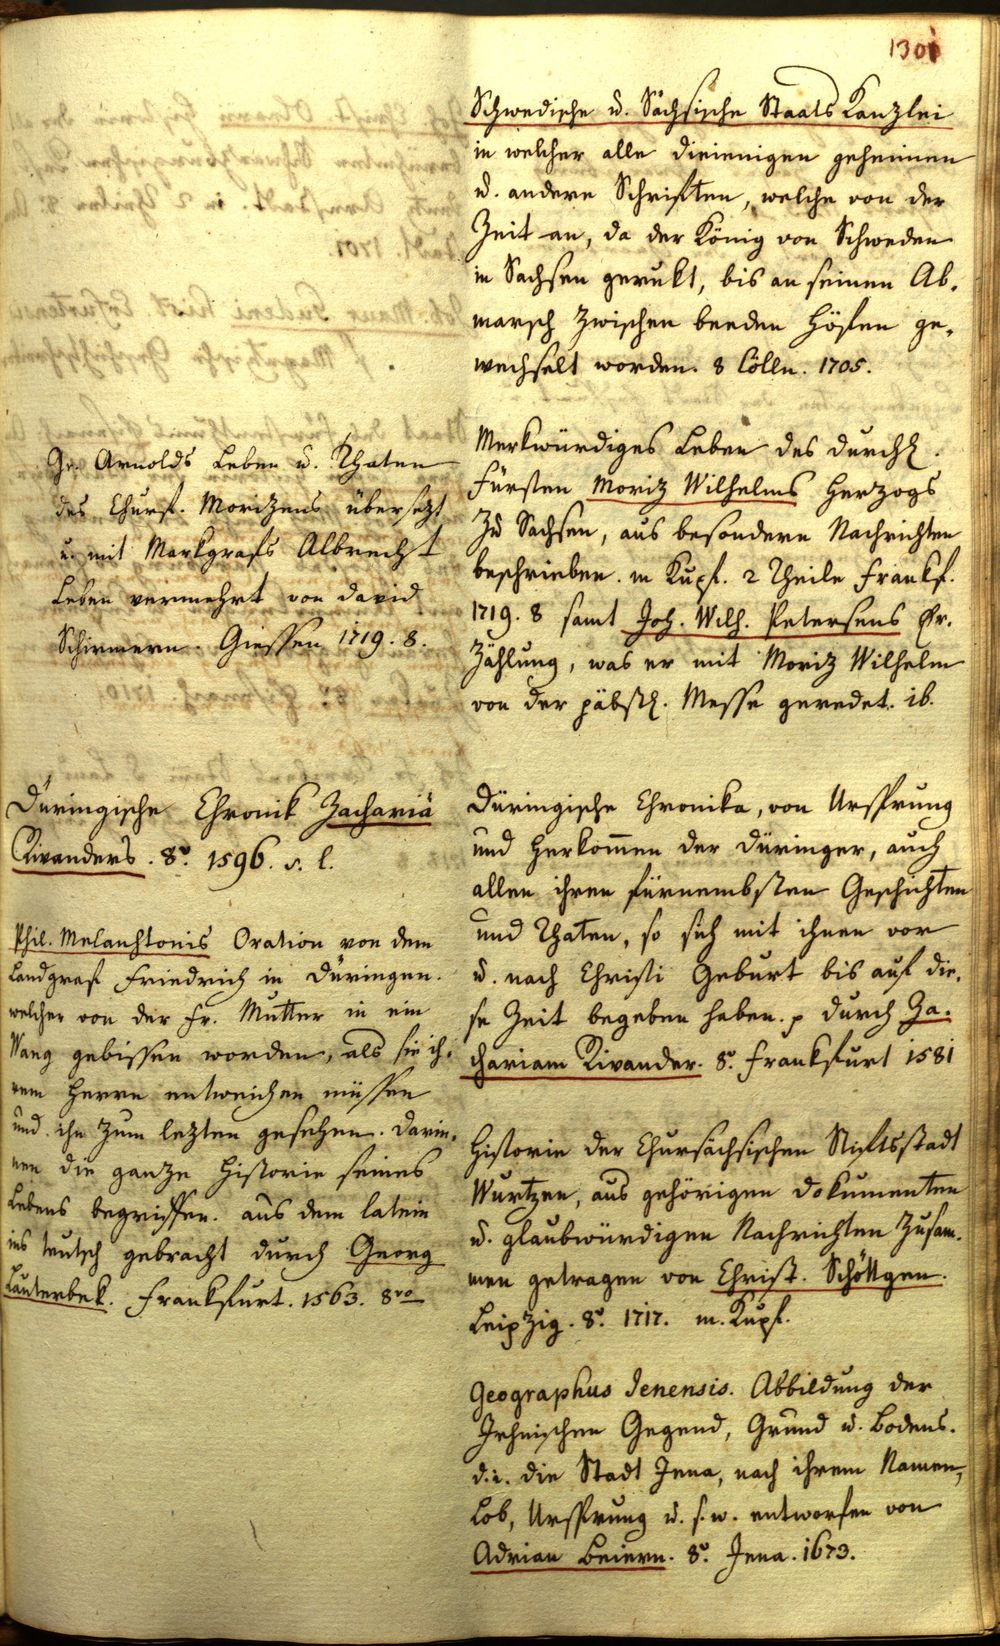 1301
Schwedische u. Sächsische Staats Kanzlei
in welcher alle dieienigen geheimen
u. andere Schriften, welche von der
Zeit an, da der König von Schweden
in Sachsen gerukt, bis an seinen Ab-
marsch zwischen beeden Höfen ge-
wechselt worden. 8 Cölln. 1705.
Merkwürdiges Leben des durchl.
Fürsten Moriz Wilhelms Herzogs
zu Sachsen, aus besondern Nachrichten
beschrieben. m Kupf. 2 Theile Frankf.
1719. 8 samt Joh. Wilh. Petersens Er-
zählung, was er mit Moriz Wilhelm
von der päbstl. Messe geredet. ib.
Düringische Chronika, von Ursprung
und Herkom̄en der Düringer, auch
allen ihren fürnembsten Geschichten
und Thaten, so sich mit ihnen vor
u. nach Christi Geburt bis auf die-
se Zeit begeben haben. p durch Za-
chariam Rivander. 8º. Frankfurt 1581
Historie der Chursächsischen Stiftsstadt
Wurtzen, aus gehörigen Dokumenten
u. glaubwürdigen Nachrichten zusam-
men getragen von Christ. Schöttgen.
Leipzig. 8º. 1717. m. Kupf.
Geographus Jenensis. Abbildung der
Jehnischen Gegend, Grund u. Bodens.
d. i. die Stadt Jena, nach ihrem Namen,
Lob, Ursprung u. s. w. entworfen von
Adrian Beiern. 8º. Jena. 1673.
Ge. Arnolds Leben u. Thaten
des Churf. Moritzens übersezt
u. mit Markgrafs Albrecht
Leben vermehrt von David
Schirmern. Giessen 1719. 8.
Düringische Chronik Zachariä
Rivanders. 8º. 1596. s. l.
Phil. Melanchtonis Oration von dem
Landgraf Friedrich in Düringen.
welcher von der Fr. Mutter in ein
Wang gebissen worden, als sie ih-
rem Herrn entweichen müssen
und ihn zum lezten gesehen. Darin-
nen die ganze Historie seines
Lebens begriffen. aus dem latein
ins teutsch gebracht durch Georg
Lauterbek. Frankfurt. 1563. 8vo